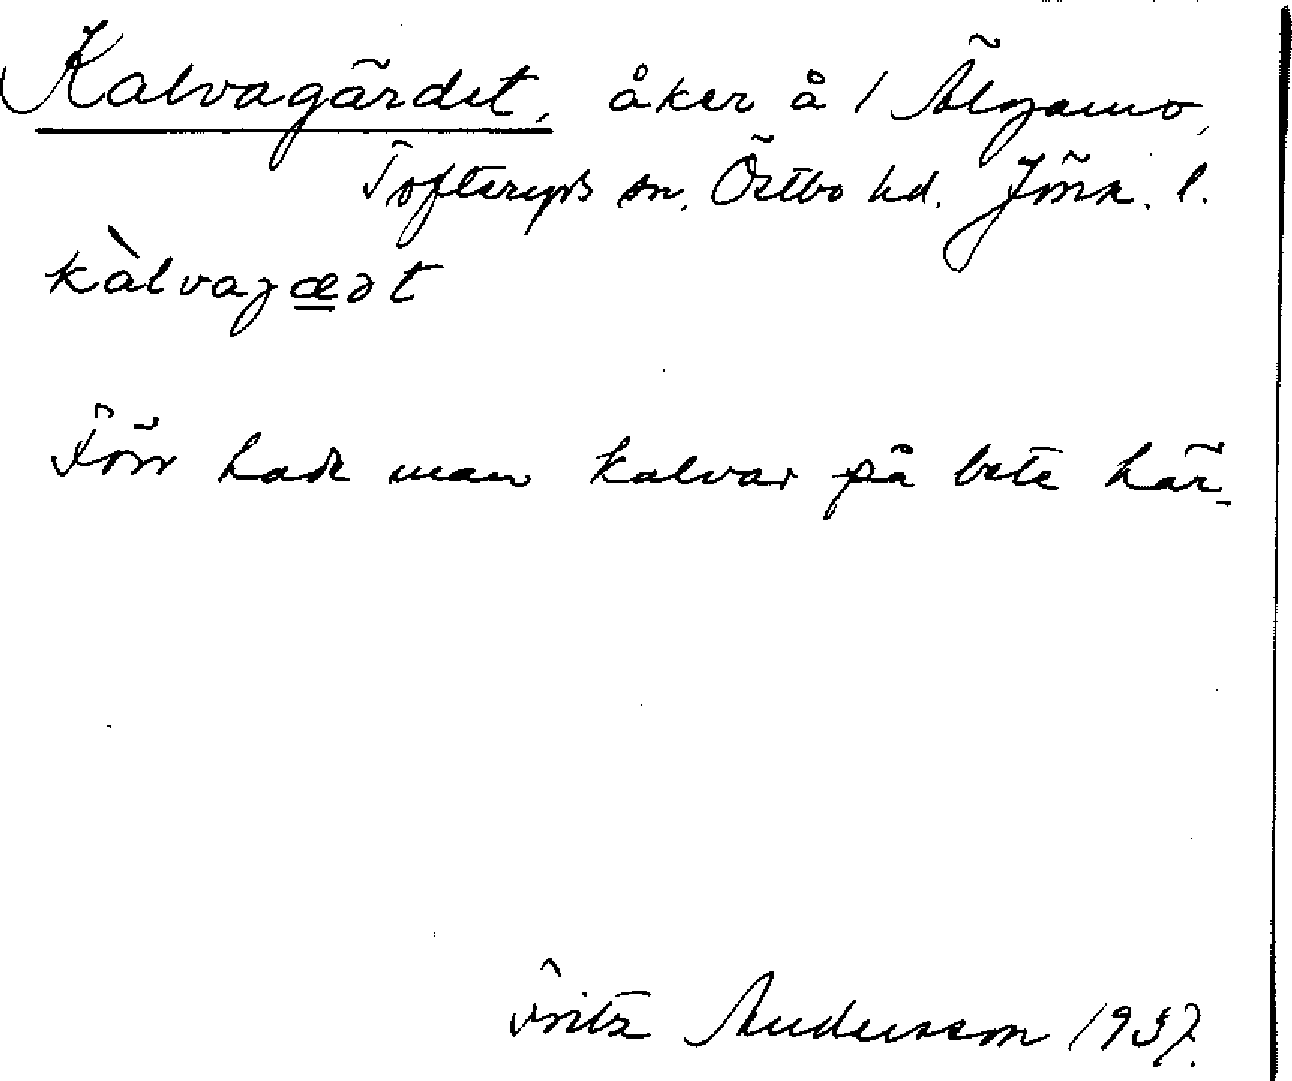 Kalvagärdet, åker å 1 Älgamo,
Tofteryds sn. Östbo hd. Jönk. l.
kàlvagædt
Förr hade man kalvar på bete här.
Fritz Andersson 1937.